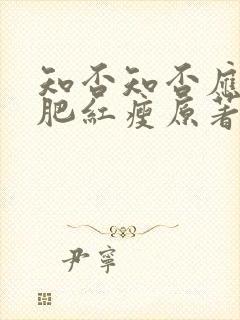 知否知否應
肥紅瘦原著
尹寧